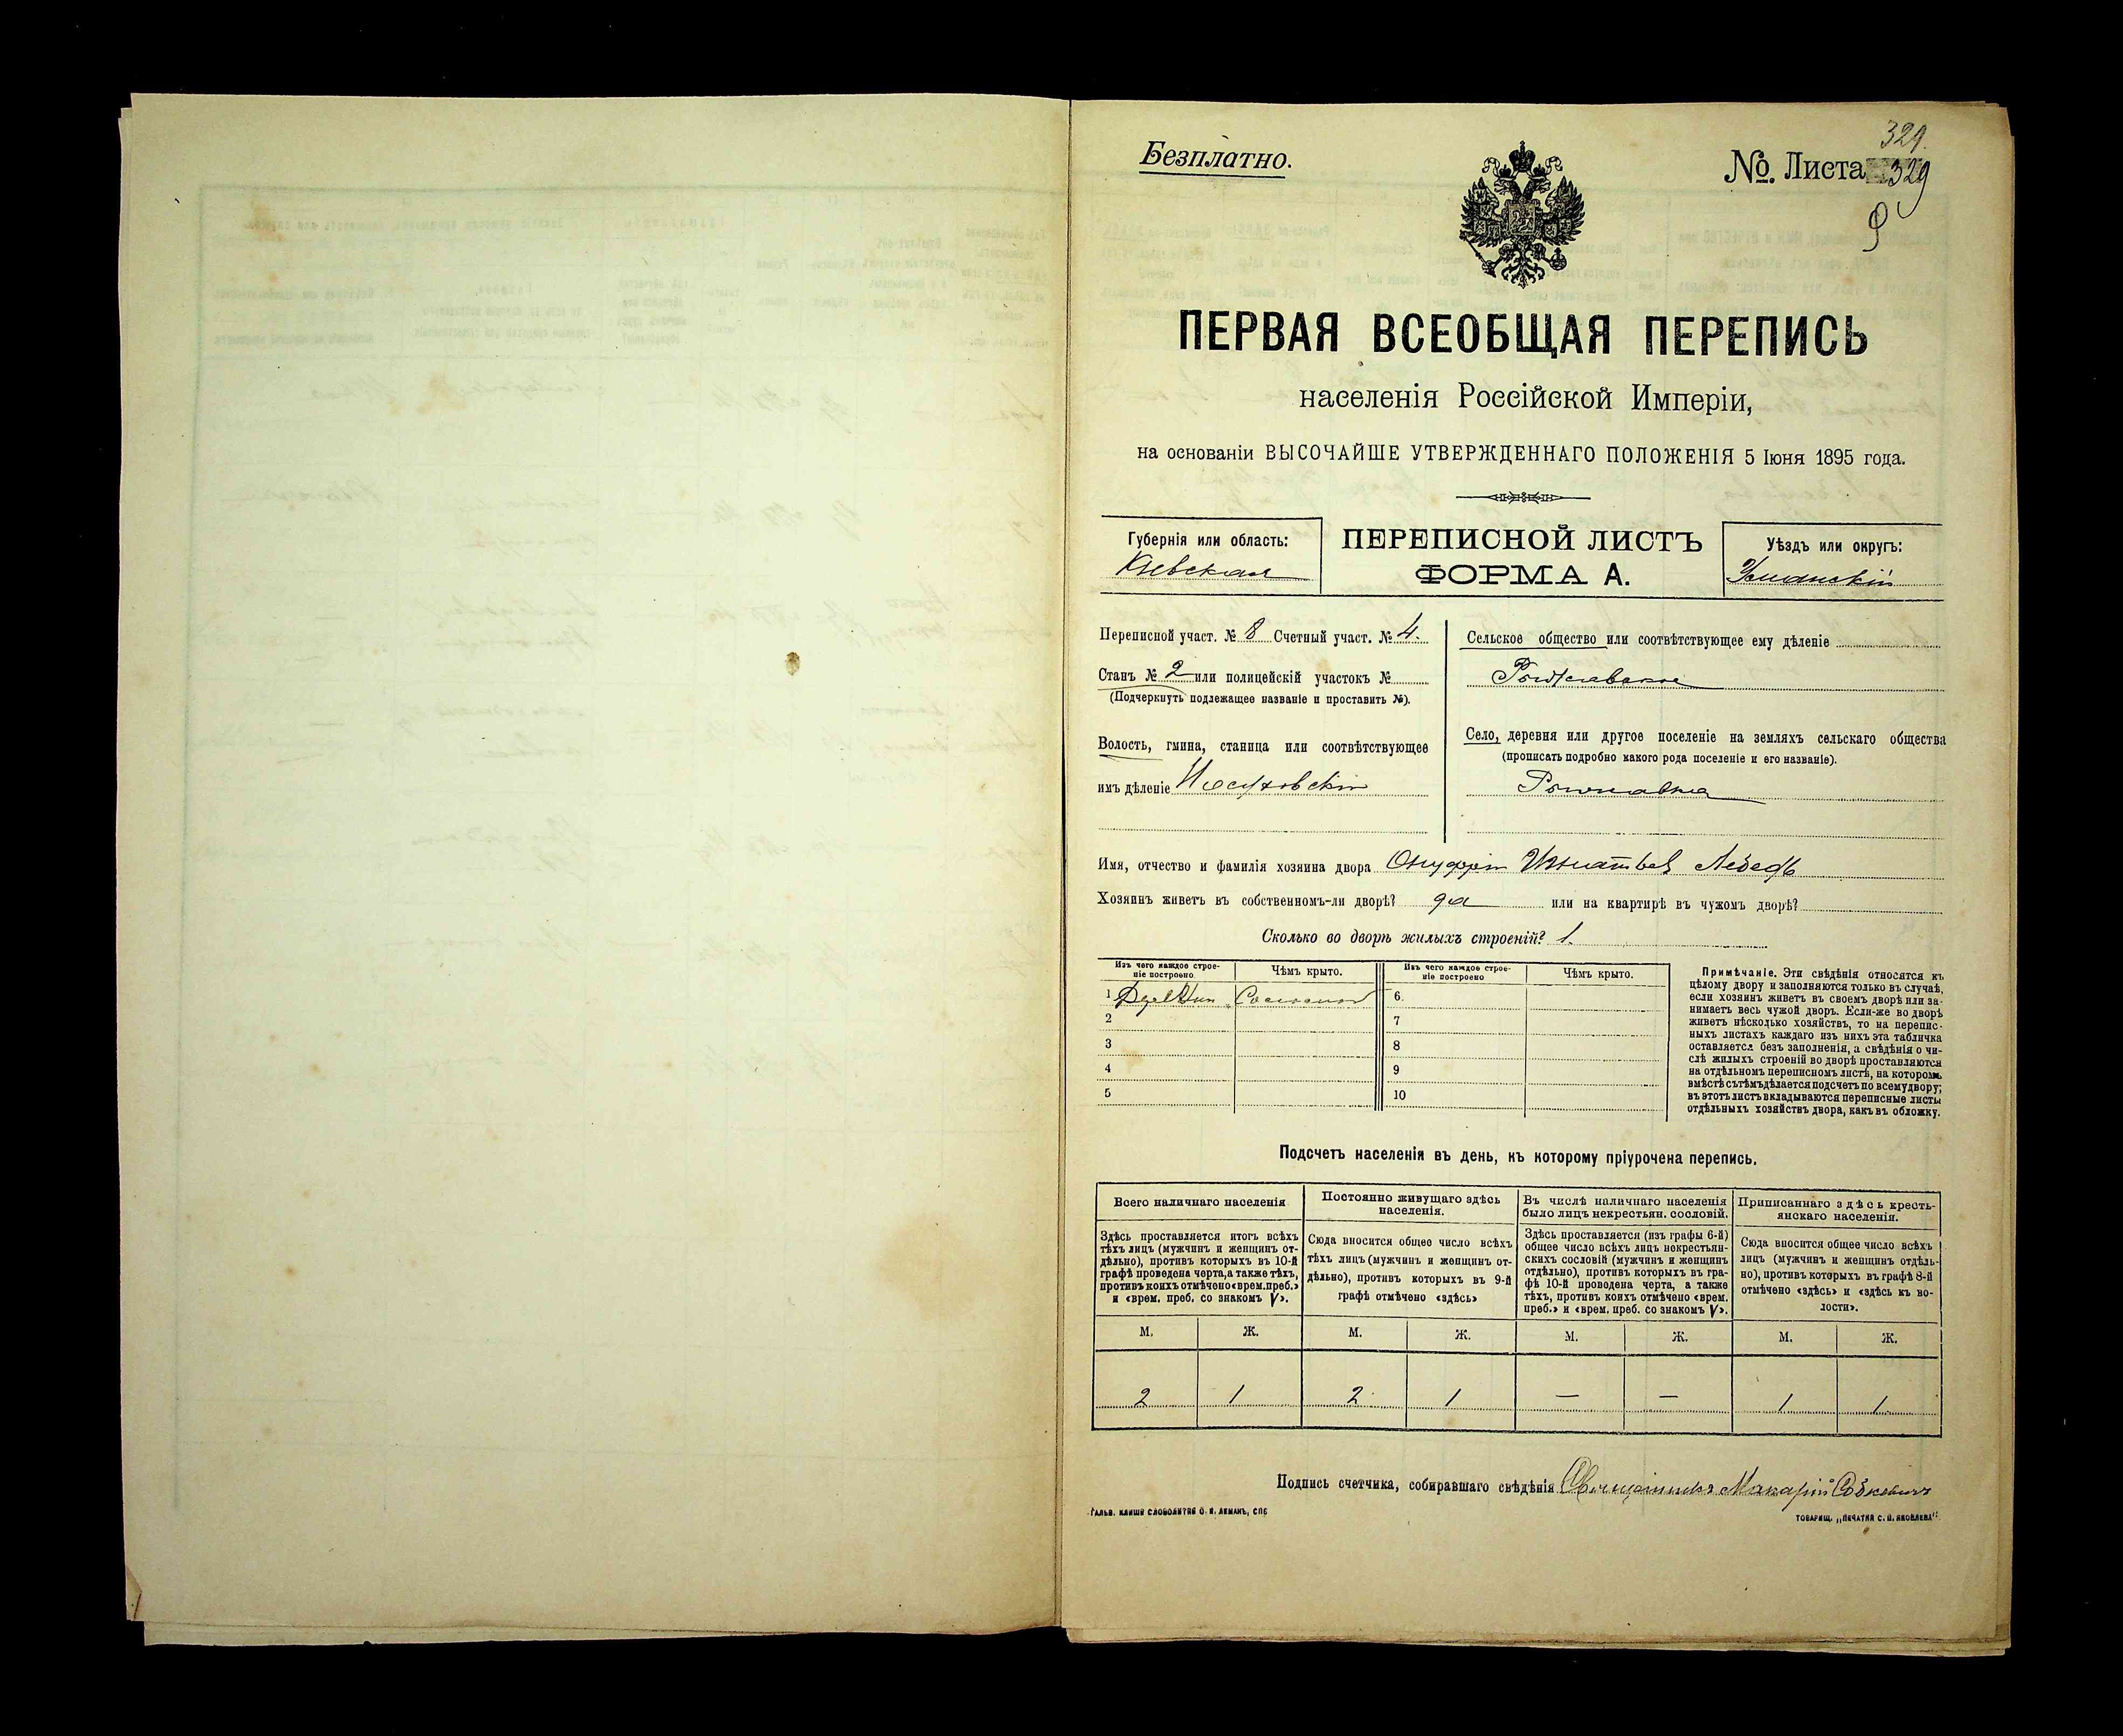 329.
Безплатно.
№. Листа 329
9
ПЕРВАЯ ВСЕОБЩАЯ ПЕРЕПИСЬ
населенія Россійской Имперіи,
на основаніи ВЫСОЧАЙШЕ УТВЕРЖДЕННАГО ПОЛОЖЕНІЯ 5 Іюня 1895 года.
Губернія или область:
Кіевская
ПЕРЕПИСНОЙ ЛИСТЪ
ФОРМА А.
Уѣздъ или округъ:
Уманскій
Переписной участ. № 8 Счетный участ. № 4.
Станъ № 2 или полицейскій участокъ №
(Подчеркнуть подлежащее названіе и проставить №).
Волость, гмина, станица или соотвѣтствующее
имъ дѣленіе
Сельское общество или соотвѣтствующее ему дѣленіе
Село, деревня или другое поселеніе на земляхъ сельскаго общества
(прописать подробно какого рода поселеніе и его названіе).
Имя, отчество и фамилія хозяина двора Онуфрій Игнатьев Лебедь
Хозяинъ живетъ въ собственномъ-ли дворѣ? да или на квартирѣ въ чужомъ дворѣ?
Сколько во дворѣ жилыхъ строеній? 1.
Изъ чего каждое строе-
ніе построено
Чѣмъ крыто.
Изъ чего каждое строе-
ніе построено
Чѣмъ крыто.
1 Соломой 6.
2 7
3 8
4 9
5 10
Примѣчаніе. Эти свѣдѣнія относятся къ
цѣлому двору и заполняются только въ случаѣ,
если хозяинъ живетъ въ своемъ дворѣ или за-
нимаетъ весь чужой дворъ. Если-же во дворѣ
живетъ нѣсколько хозяйствъ, то на перепис-
ныхъ листахъ каждаго изъ нихъ эта табличка
оставляется безъ заполненія, а свѣдѣнія о чи-
слѣ жилыхъ строеній во дворѣ проставляются
на отдѣльномъ переписномъ листѣ, на которомъ
вмѣстѣ съ тѣмъ дѣлается подсчетъ по всему двору;
въ этотъ листъ вкладываются переписные листы
отдѣльныхъ хозяйствъ двора, какъ въ обложку.
Подсчетъ населенія въ день, къ которому пріурочена перепись.
Всего наличнаго населенія
Здѣсь проставляется итогъ всѣхъ
тѣхъ лицъ (мужчинъ и женщинъ от-
дѣльно), противъ которыхъ въ 10-й
графѣ проведена черта, а также тѣхъ,
противъ коихъ отмѣчено «врем. преб.»
и «врем. преб. со знакомъ V».
Постоянно живущаго здѣсь
населенія.
Сюда вносится общее число всѣхъ
тѣхъ лицъ (мужчинъ и женщинъ от-
дѣльно), противъ которыхъ въ 9-й
графѣ отмѣчено «здѣсь»
Въ числѣ наличнаго населенія
было лицъ некрестьян. сословій.
Здѣсь проставляется (изъ графы 6-й)
общее число всѣхъ лицъ некрестьян-
скихъ сословій (мужчинъ и женщинъ
отдѣльно), противъ которыхъ въ гра-
фѣ 10-й проведена черта, а также
тѣхъ, противъ коихъ отмѣчено «врем.
преб.» и «врем. преб. со знакомъ V».
Приписаннаго здѣсь кресть-
янскаго населенія.
Сюда вносится общее число всѣхъ
лицъ (мужчинъ и женщинъ отдѣль-
но), противъ которыхъ въ графѣ 8-й
отмѣчено «здѣсь» и «здѣсь въ во-
лости».
М. Ж. М. Ж. М. Ж. М. Ж.
2 1 2 1 — — 1 1
Подпись счетчика, собиравшаго свѣдѣнія Священникъ Макарій
ГАЛЬВ. КЛИШЕ СЛОВОЛИТНИ О. И. ЛЕМАНЪ, СПБ
ТОВАРИЩ. „ПЕЧАТНЯ С. П. ЯКОВЛЕВА“